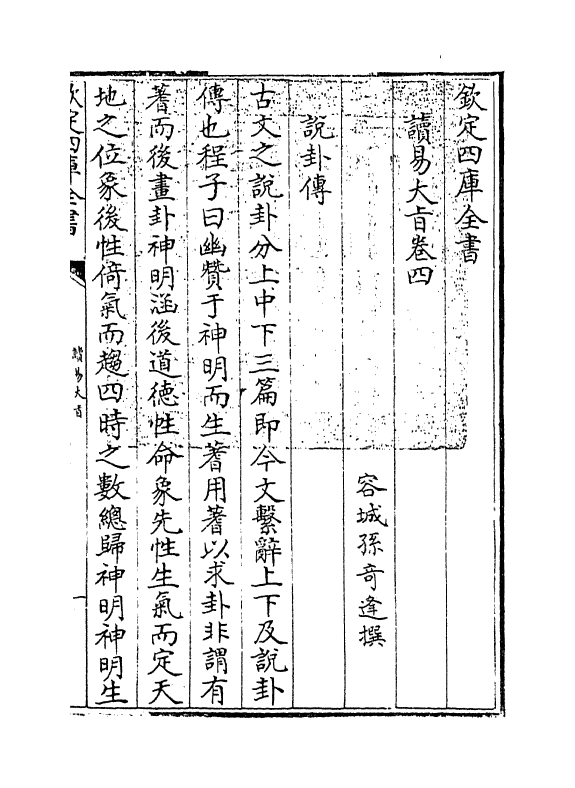 欽定四庫全書
讀易大旨卷四
容城孫奇逢撰
說卦傳
古文之說卦分上中下三篇即今文繫辭上下及說卦
傳也程子曰幽贊于神明而生蓍用蓍以求卦非謂有
蓍而後畫卦神明涵後道德性命象先性生氣而定天
地之位象後性倚氣而趨四時之數總歸神明神明生
欽定四庫全書
讀易大旨
一